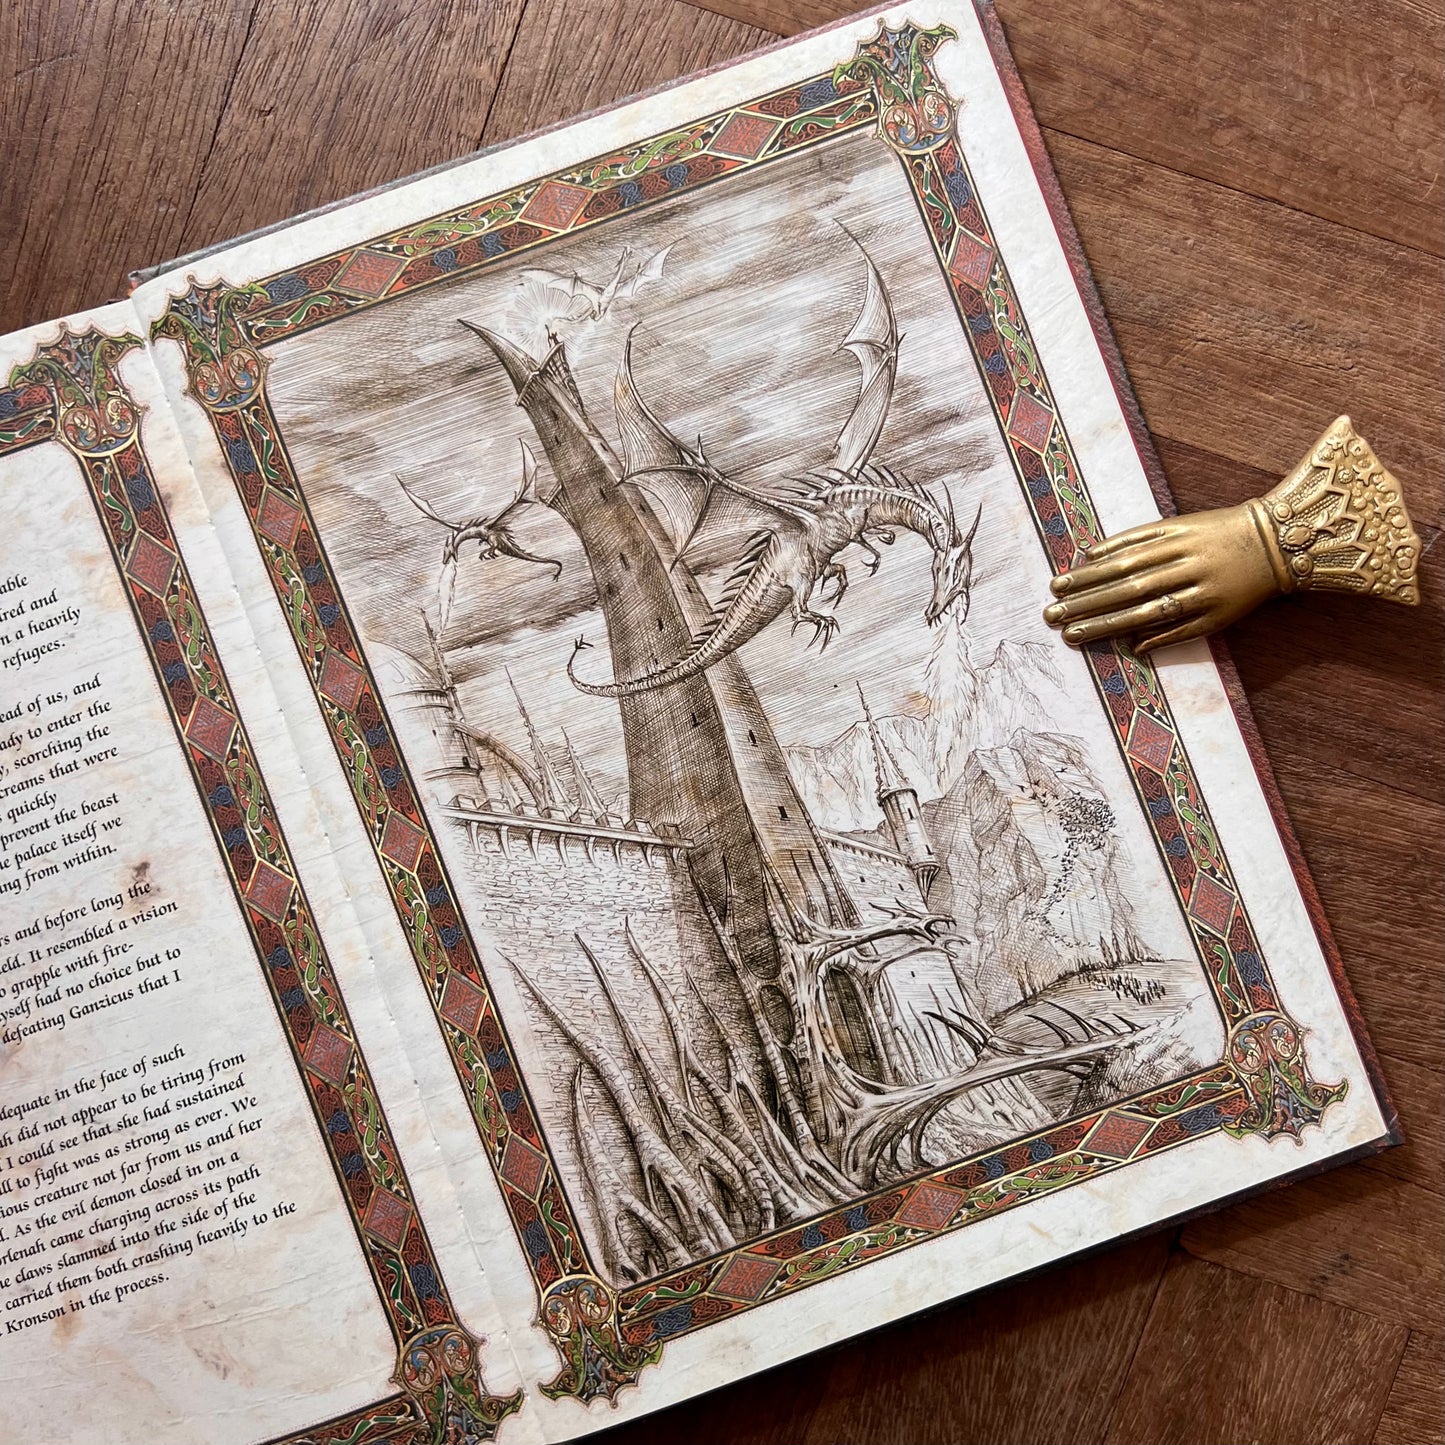 able
ired and
n a heavily
refugees.
ead of us, and
ady to enter the
y, scorching the
creams that were
s quickly
prevent the beast
he palace itself we
ing from within.
rs and before long the
ield. It resembled a vision
o grapple with fire-
yself had no choice but to
defeating Ganzicus that I
dequate in the face of such
ah did not appear to be tiring from
d I could see that she had sustained
ill to fight was as strong as ever. We
ious creature not far from us and her
d. As the evil demon closed in on a
orlenah came charging across its path
he claws slammed into the side of the
carried them both crashing heavily to the
Kronson in the process.